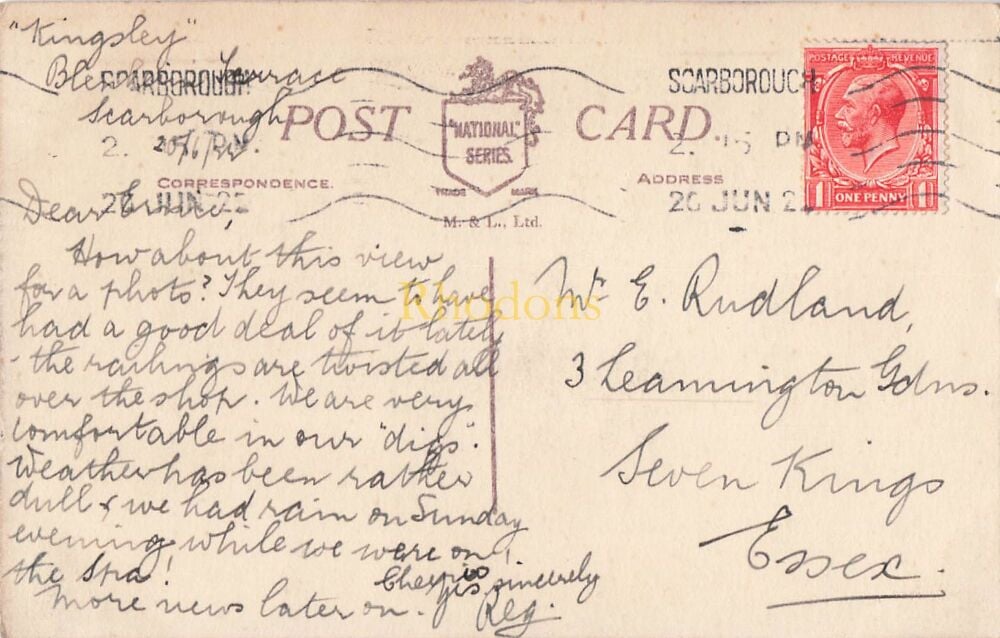 "Kingsley"
Blenheim Terrace
Scarborough
SCARBOROUGH
2. PM
26 JUN 22
SCARBOROUGH
2. 15 PM
26 JUN 22
POSTAGE REVENUE
1 ONE PENNY 1
POST CARD.
"NATIONAL"
SERIES.
TRADE MARK
CORRESPONDENCE.
ADDRESS
M. & L., Ltd.
Dear
How about this view
for a photo? They seem to have
had a good deal of it lately
- the railings are twisted all
over the shop. We are very
comfortable in our "digs".
Weather has been rather
dull & we had rain on Sunday
evening while we were on
the Spa!
More news later on.
Cheerio
Yrs sincerely
Reg.
Mr E. Rudland,
3 Leamington Gdns.
Seven Kings
Essex.
Rhodons